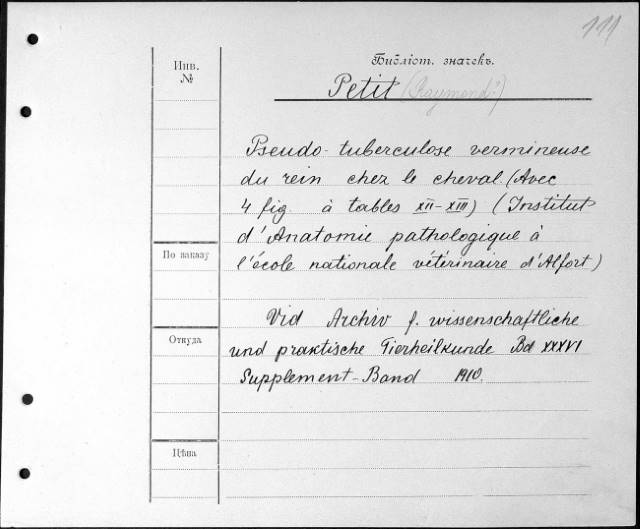 111
Инв.
№
Библіот. значекъ.
Petit (Raymond)
Pseudo-tuberculose vermineuse
du rein chez le cheval. (Avec
4 fig. à tables XII-XIII) (Institut
d'Anatomie pathologique à
l'école nationale vétérinaire d'Alfort)
По заказу
Vid Archiv f. wissenschaftliche
und praktische Tierheilkunde Bd XXXVI
Supplement-Band 1910.
Откуда
Цѣна